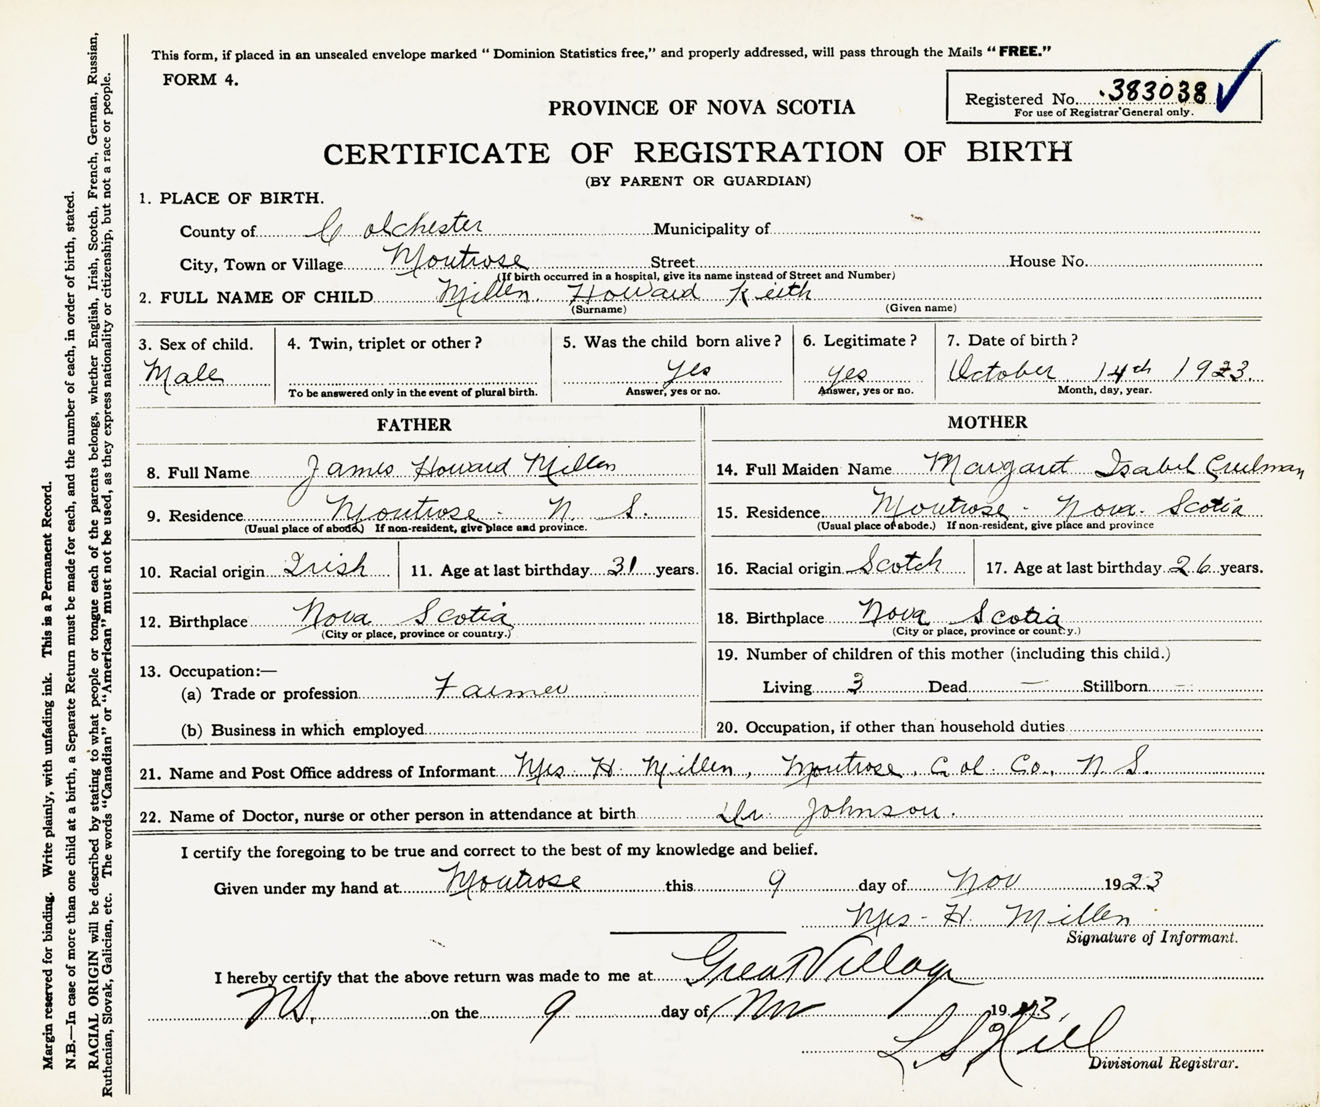 This form, if placed in an unsealed envelope marked "Dominion Statistics free," and properly addressed, will pass through the Mails "FREE."
FORM 4.
Registered No. 383038
For use of Registrar General only.
PROVINCE OF NOVA SCOTIA
CERTIFICATE OF REGISTRATION OF BIRTH
(BY PARENT OR GUARDIAN)
1. PLACE OF BIRTH.
County of Colchester Municipality of
City, Town or Village Montrose Street House No.
(If birth occurred in a hospital, give its name instead of Street and Number)
2. FULL NAME OF CHILD Millen, Howard Keith
(Surname) (Given name)
3. Sex of child. 4. Twin, triplet or other? 5. Was the child born alive? 6. Legitimate? 7. Date of birth?
Male yes yes October 14th 1923.
To be answered only in the event of plural birth. Answer, yes or no. Answer, yes or no. Month, day, year.
FATHER MOTHER
8. Full Name James Howard Millen 14. Full Maiden Name Margaret Isabel
9. Residence Montrose - N. S. 15. Residence Montrose - Nova Scotia
(Usual place of abode.) If non-resident, give place and province. (Usual place of abode.) If non-resident, give place and province
10. Racial origin Irish 11. Age at last birthday 31 years. 16. Racial origin Scotch 17. Age at last birthday 26 years.
12. Birthplace Nova Scotia 18. Birthplace Nova Scotia
(City or place, province or country.) (City or place, province or country.)
13. Occupation:— 19. Number of children of this mother (including this child.)
(a) Trade or profession Farmer Living 3 Dead — Stillborn —
(b) Business in which employed 20. Occupation, if other than household duties
21. Name and Post Office address of Informant Mrs H. Millen, Montrose, Col. Co., N. S.
22. Name of Doctor, nurse or other person in attendance at birth Dr. Johnson.
I certify the foregoing to be true and correct to the best of my knowledge and belief.
Given under my hand at Montrose this 9 day of Nov 1923
Mrs - H. Millen
Signature of Informant.
I hereby certify that the above return was made to me at Great Village
NS. on the 9 day of Nov 1923.
L S Hill
Divisional Registrar.
Margin reserved for binding. Write plainly, with unfading ink. This is a Permanent Record.
N.B.—In case of more than one child at a birth, a Separate Return must be made for each, and the number of each, in order of birth, stated.
RACIAL ORIGIN will be described by stating to what people or tongue each of the parents belongs, whether English, Irish, Scotch, French, German, Russian,
Ruthenian, Slovak, Galician, etc. The words "Canadian" or "American" must not be used, as they express nationality or citizenship, but not a race or people.